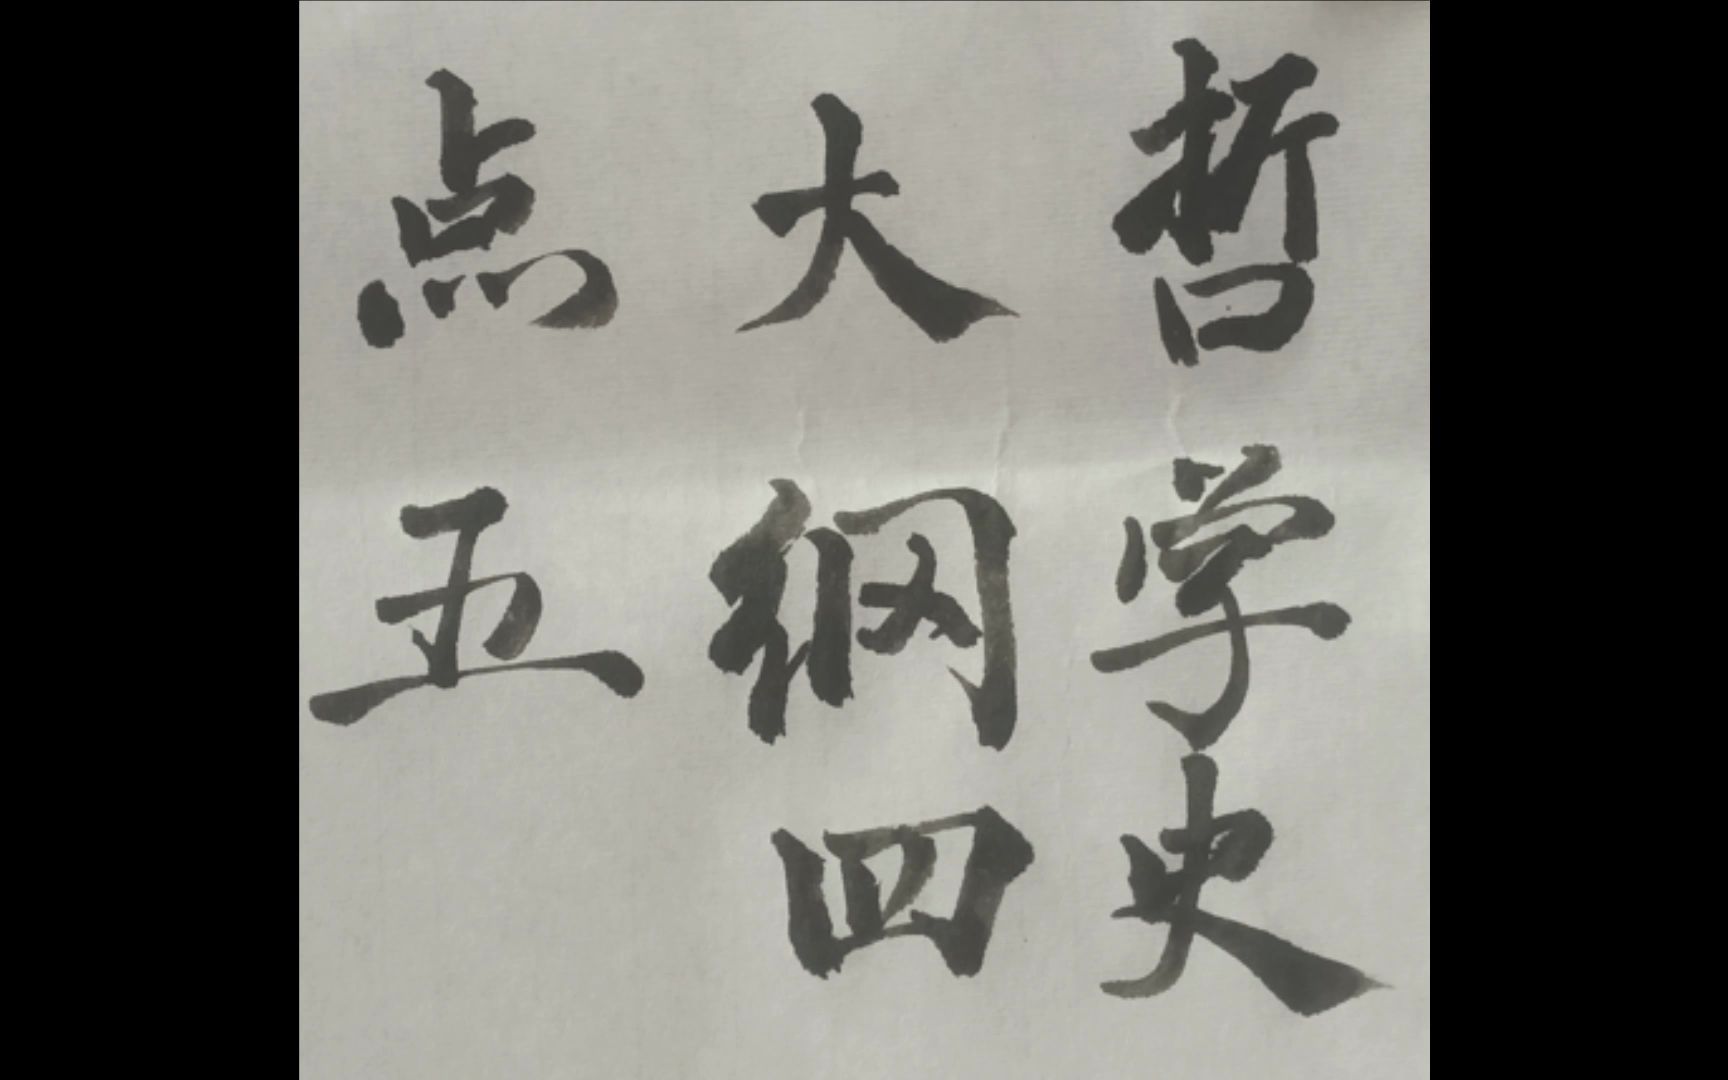 哲学史
大纲四
点五